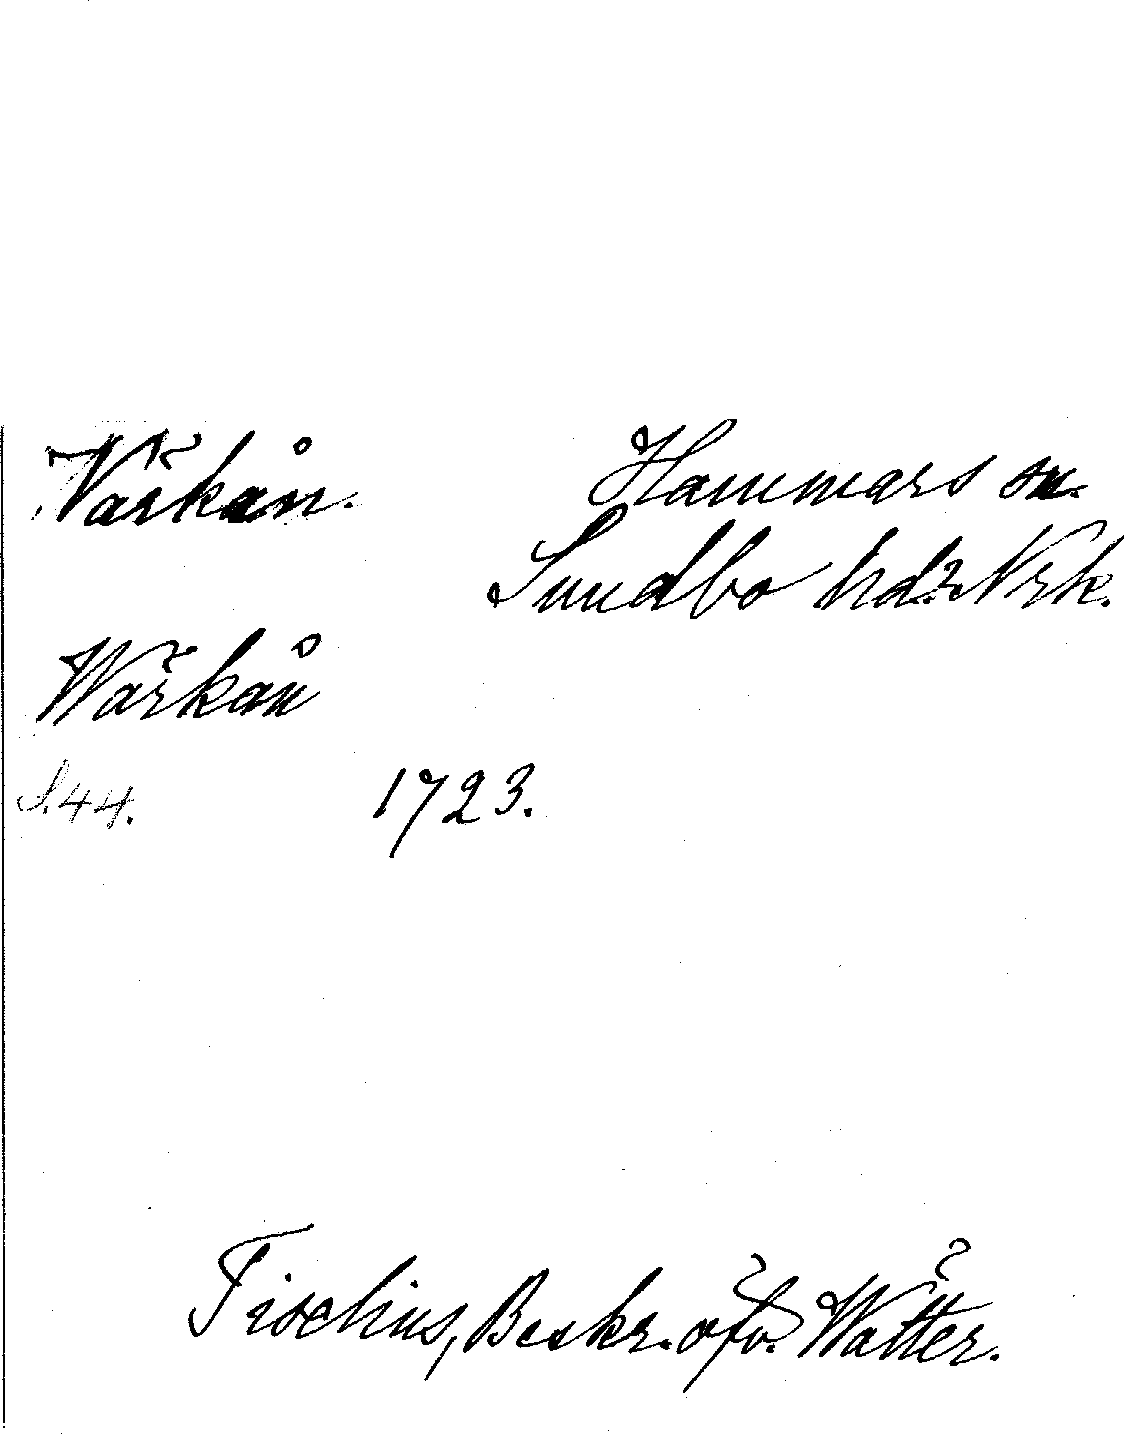 Värkån.
Hammars sn.
Sundbo hd. Nrk.
Wärkån
S. 44. 1723.
Tiselius, Beskr. öfv. Wätter.